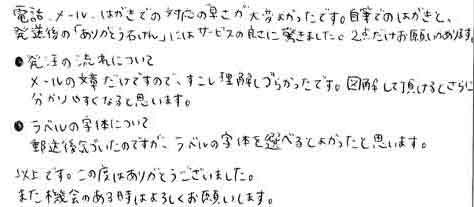 電話、メール、はがきでの対応の早さが大変よかったです。自筆でのはがきと、
発送後の「ありがとう石けん」にはサービスの良さに驚きました。2点だけお願いがあります。
●発注の流れについて
メールの文章だけですので、すこし理解しづらかったです。図解して頂けるとさらに
分かりやすくなると思います。
●ラベルの字体について
郵送後気づいたのですが、ラベルの字体を選べるとよかったと思います。
以上です。この度はありがとうございました。
また機会のある時はよろしくお願いします。